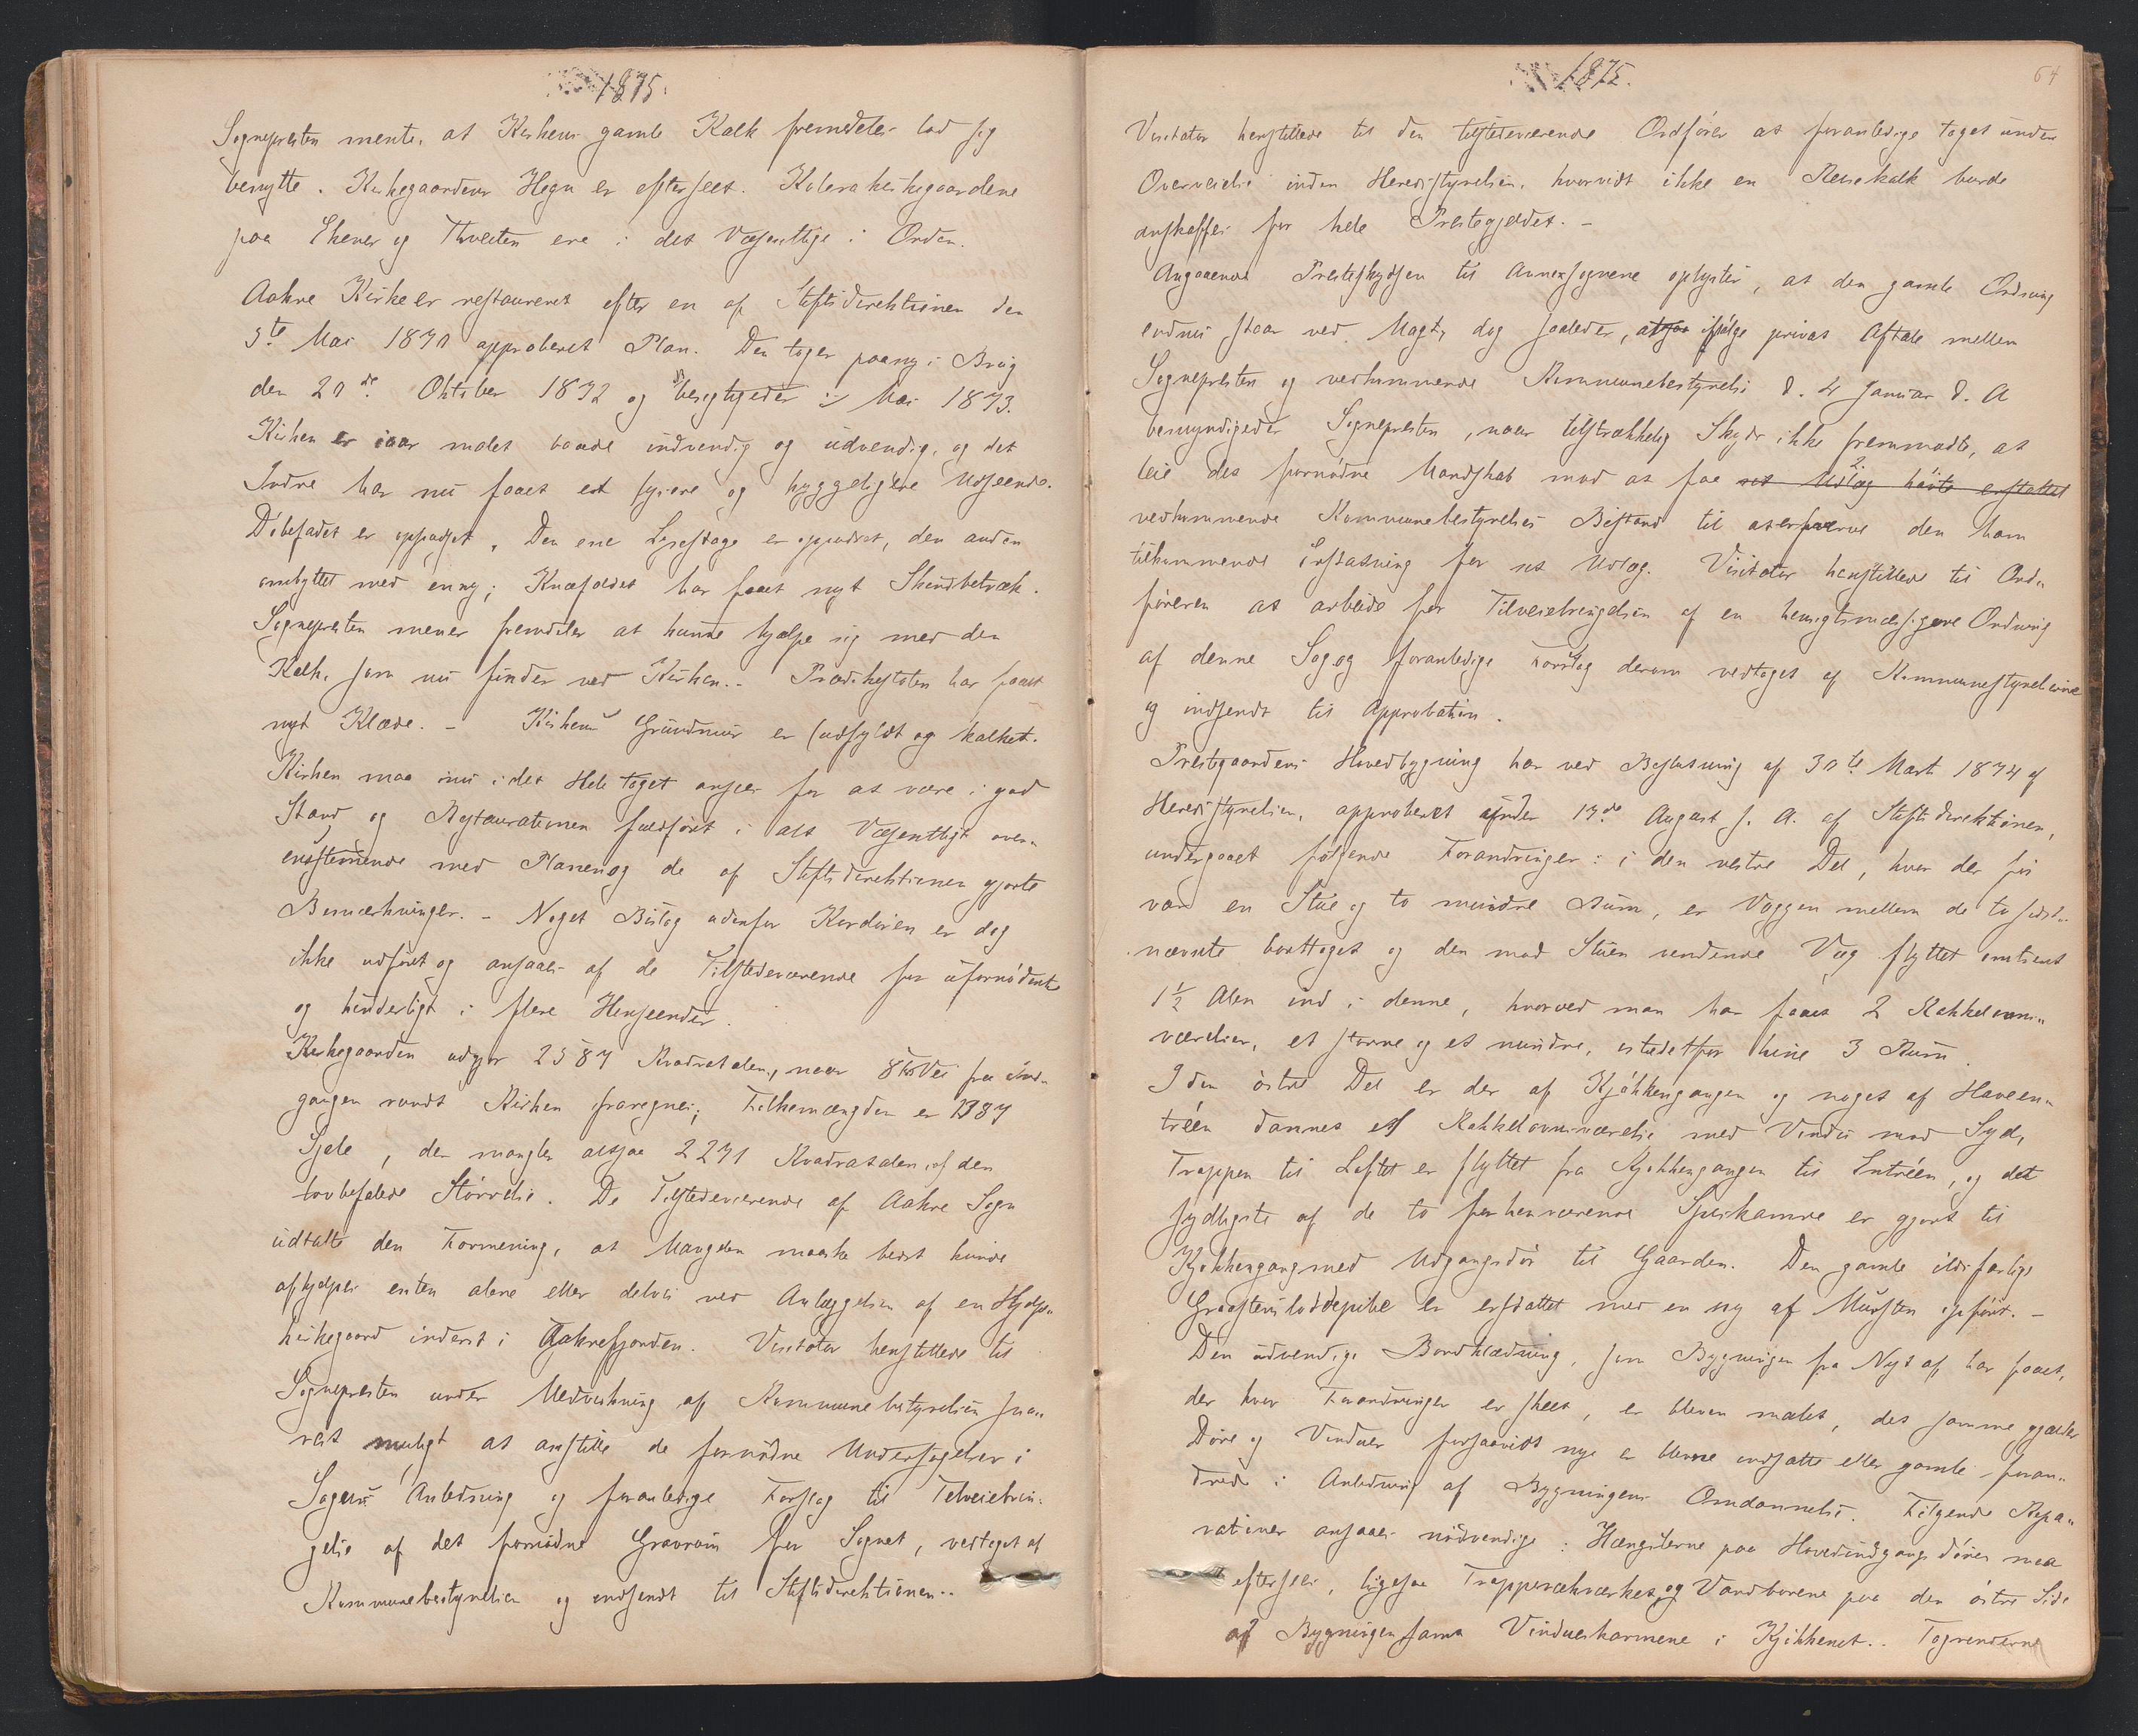 1875.
Sognepresten mente, at Kirkens gamle Kalk fremdeles lod sig
benytte. Kirkegaardens Hegn er efterseet. Kolerakirkegaardene
paa Ekenes og Thveiten ere i det Væsentlige i Orden.
Aakre Kirke er restaureret efter en af Stiftsdirektionen den
3te Mai 1870 approberet Plan. Den toges paany i Brug
den 20de Oktober 1872 og besigtigedes i Mai 1873.
Kirken er iaar malet baade indvendig og udvendig, og det
Indre har nu faaet et lysere og hyggeligere Udseende.
Døbefadet er oppudset. Den ene Lysestage er oppudset, den anden
ombyttet med en ny; Knæfaldet har faaet nyt Skindbetræk.
Sognepresten mener fremdeles at kunne hjælpe sig med den
Kalk, som nu findes ved Kirken. - Prædikestolen har faaet
nyt Klæde. - Kirkens Grundmur er udfyldt og kalket.
Kirken maa nu i det Hele taget ansees for at være i god
Stand og Restaurationen fuldført i alt Væsentligt over„
ensstemmende med Planen og de af Stiftsdirektionen gjorte
Bemærkninger. - Noget Bislag udenfor Kordøren er dog
ikke udført og ansaaes af de Tilstedeværende for ufornødent
og hinderligt i flere Henseender.
Kirkegaarden udgjør 2587 Kvadratalen, naar Vei fra Ind„
gangen rundt Kirken fraregnes; Folkemængden er 1387
Sjele, der mangler altsaa 2271 Kvadratalen af den
lovbefalede Størrelse. De Tilstedeværende af Aakre Sogn
udtalte den Formening, at Mangelen maaske bedst kunde
afhjelpes enten alene eller delvis ved Anlæggelsen af en Hjelpe„
kirkegaard inderst i Aakrefjorden. Visitator henstillede til
Sognepresten under Medvirkning af Kommunebestyrelsen sna„
rest muligt at anstille de fornødne Undersøgelser i
Sagens Anledning og foranledige Forslag til Tilveiebrin„
gelse af det fornødne Gravrum for Sognet, vedtaget af
Kommunebestyrelsen og indsendt til Stiftsdirektionen. -
1875.
64
Visitator henstillede til den tilstedeværende Ordfører at foranledige taget under
Overveielse inden Heredsstyrelsen, hvorvidt ikke en Reisekalk burde
anskaffes for hele Prestegjeldet. -
Angaaende Presteskydsen til Annexsognene oplystes, at den gamle Ordning
endnu staar ved Magt, dog saaledes, at ifølge privat Aftale mellem
Sognepresten og vedkommende Kommunebestyrelse d. 4 Januar d. A
bemyndigedes Sognepresten, naar tilstrækkelig Skyds ikke fremmødte, at
leie det fornødne Mandskab mod at faa sit Udlæg erstattet
vedkommende Kommunebestyrelses Bistand til at erhverve den ham
tilkommende Erstatning for sit Udlæg. Visitator henstillede til Ord„
føreren at arbeide for Tilveiebringelsen af en hensigtsmæssigere Ordning
af denne Sag og foranledige Forslag derom vedtaget af Kommunestyrelserne
og indsendt til Approbation.
Prestegaardens Hovedbygning har ved Beslutning af 30te Marts 1874 af
Heredsstyrelsen, approberet under 19de August s. A. af Stiftsdirektionen,
undergaaet følgende Forandringer: i den vestre Del, hvor der før
var en Stue og to mindre Rum, er Væggen mellem de to sidst„
nævnte borttaget og den mod Stuen vendende Væg flyttet omtrent
1½ Alen ind i denne, hvorved man har faaet 2 Kakkelovns„
værelser, et større og et mindre, istedetfor hine 3 Rum.
I den østre Del er der af Kjøkkengangen og noget af Haveen„
tréen dannet et Kakkelovnsværelse med Vindu mod Syd,
Trappen til Loftet er flyttet fra Kjøkkengangen til Entréen, og det
sydligste af de to forhenværende Spiskamre er gjort til
Kjøkkengang med Udgangsdør til Gaarden. Den gamle ildsfarlige
Graastens er erstattet med en ny af Mursten opført. -
Den udvendige Bordklædning, som Bygningen fra Nyt af har faaet,
der hvor Forandringer er skeet, er bleven malet, det samme gjælder
Døre og Vinduer forsaavidt nye er blevne indsatte eller gamle foran„
drede i Anledning af Bygningens Omdannelse. Følgende Repa„
rationer ansaaes nødvendige: Hængslerne paa Hovedindgangsdøren maa
eftersees, ligesaa Trapperækværket og Vandbordene paa den østre Side
af Bygningen samt Vindueskarmene i Kjøkkenet. - Tagrenderne